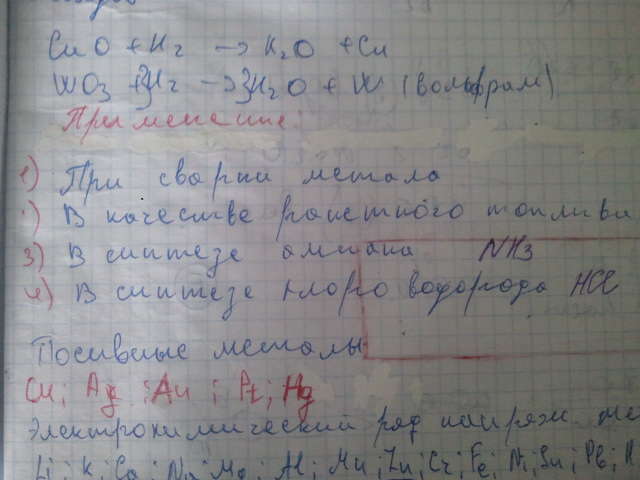 CuO + H₂ → H₂O + Cu
WO₃ + 3H₂ → 3H₂O + W (вольфрам)
Применение:
1) При сварки метала
2) В качестве ракетного топлива
3) В синтезе амиака NH₃
4) В синтезе хлоро водорода HCl
Посивные металы
Cu; Ag; Au; Pt; Hg
Электрохимический ряд напряж. ме
Li; K; Ca; Na; Mg; Al; Mn; Zn; Cr; Fe; Ni; Sn; Pb; H